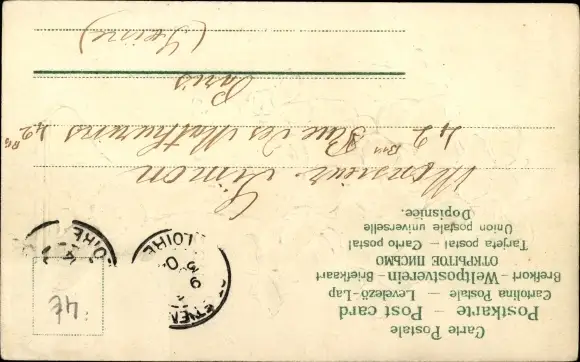 Carte Postale
Postkarte — Post card
Cartolina Postale — Levelező-Lap
Brefkort — Weltpostverein — Briefkaart
ОТКРЫТОЕ ПИСЬМО
Tarjeta postal — Carto postal
Union postale universelle
Dopisnice.
4€
LOIRE
Monsieur Simon
42 Bis Rue des Mathurins 42 Bis
Paris
(Seine)